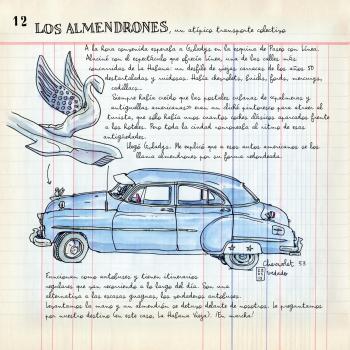 12 LOS ALMENDRONES, un atípico transporte colectivo
A la hora convenida esperaba a Gladys en la esquina de Paseo con Línea.
Aluciné con el espectáculo que ofrecía Línea, una de las calles más
concurridas de La Habana: un desfile de viejas carracas de los años 50
destartaladas y ruidosas. Había chevrolets, buicks, fords, mercurys,
cadillacs...
Siempre había creído que las postales cubanas de «palmeras y
antiguallas americanas» eran un cliché pintoresco para atraer al
turista, que sólo había unos cuantos coches clásicos aparcados frente
a los hoteles. Pero toda la ciudad ronroneaba al ritmo de esas
antigüedades.
Llegó Gladys. Me explicó que a esos autos americanos se los
llama almendrones por su forma redondeada.
Chevrolet 53
Vedado
Funcionan como autobuses y tienen itinerarios
regulares que van recorriendo a lo largo del día. Son una
alternativa a las escasas guaguas, los verdaderos autobuses.
Levantamos la mano y un almendrón se detuvo delante de nosotros. Le preguntamos
por nuestro destino (en este caso, La Habana Vieja). ¡En marcha!